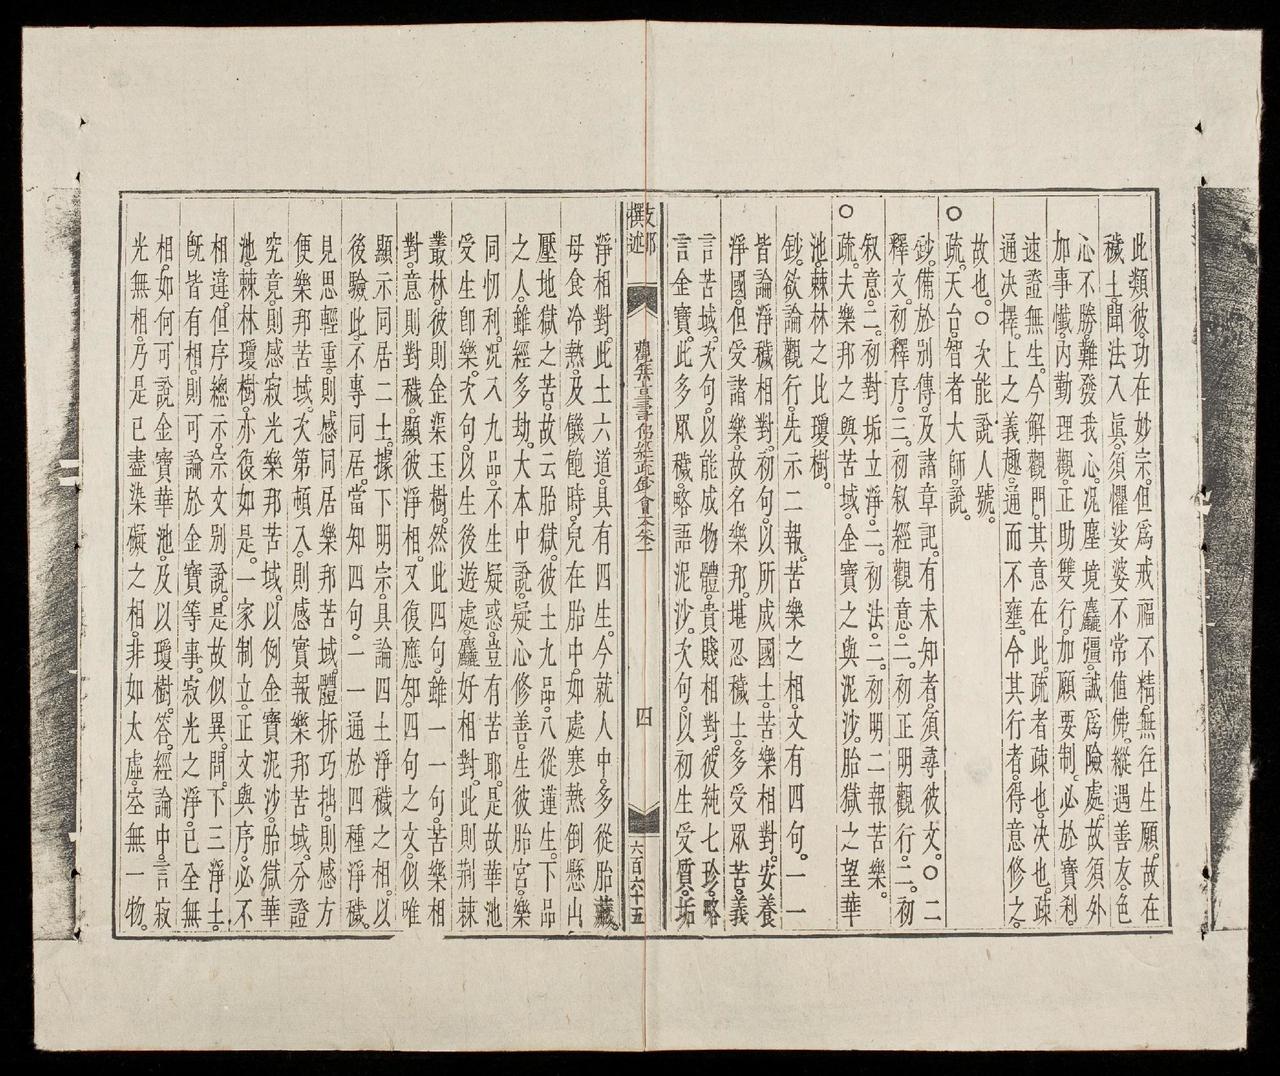 此類彼功在妙宗。但爲戒福不精。無往生願。故在
穢土。聞法入眞。須懼娑婆不常值佛。縱遇善友。色
心不勝。難發我心。況塵境麤彊。誠爲險處。故須外
加事懺。內勤理觀。正助雙行。加願要制。必於寶刹。
速證無生。今解觀門。其意在此。疏者疎也。決也。疎
通決擇。上之義趣。通而不壅。令其行者得意修之。
故也。○次能說人號。
○疏。天台智者大師。說。
鈔。備於別傳。及諸章記。有未知者。須尋彼文。○二
釋文。初釋序。三。初叙經觀意。二。初正明觀行。二。初
叙意。二。初對垢立淨。二。初法。二。初明二報苦樂。
○疏。夫樂邦之與苦域。金寶之與泥沙。胎獄之望華
池。棘林之比瓊樹。
鈔。欲論觀行。先示二報。苦樂之相。文有四句。一一
皆論淨穢相對。初句。以所成國土。苦樂相對。安養
淨國。但受諸樂。故名樂邦。堪忍穢土。多受眾苦。義
言苦域。次句。以能成物體。貴賤相對。彼純七珍。略
言金寶。此多眾穢。略語泥沙。次句。以初生受質。垢
支那撰述
觀無量壽佛經疏鈔會本卷一
四
六百六十五
淨相對。此土六道。具有四生。今就人中。多從胎藏。
母食冷熱。及饑飽時。兒在胎中。如處寒熱倒懸山
壓地獄之苦。故云胎獄。彼土九品。八從蓮生。下品
之人。雖經多劫。大本中說。疑心修善。生彼胎宮。樂
同忉利。況入九品。不生疑惑。豈有苦耶。是故華池
受生卽樂。次句。以生後遊處。麤好相對。此則荊棘
叢林。彼則金渠玉樹。然此四句。雖一一句。苦樂相
對。意則對穢。顯彼淨相。又復應知。四句之文。似唯
顯示同居二土。據下明宗。具論四土淨穢之相。以
後驗此。不專同居。當知四句。一一通於四種淨穢。
見思輕重。則感同居樂邦苦域。體拆巧拙。則感方
便樂邦苦域。次第頓入。則感實報樂邦苦域。分證
究竟。則感寂光樂邦苦域。以例金寶泥沙。胎獄華
池。棘林瓊樹。亦復如是。一家制立。正文與序。必不
相違。但序總示。宗文別說。是故似異。問。下三淨土。
旣皆有相。則可論於金寶等事。寂光之淨。已全無
相。如何可說金寶華池。及以瓊樹。答。經論中。言寂
光無相。乃是已盡染礙之相。非如太虛。空無一物。